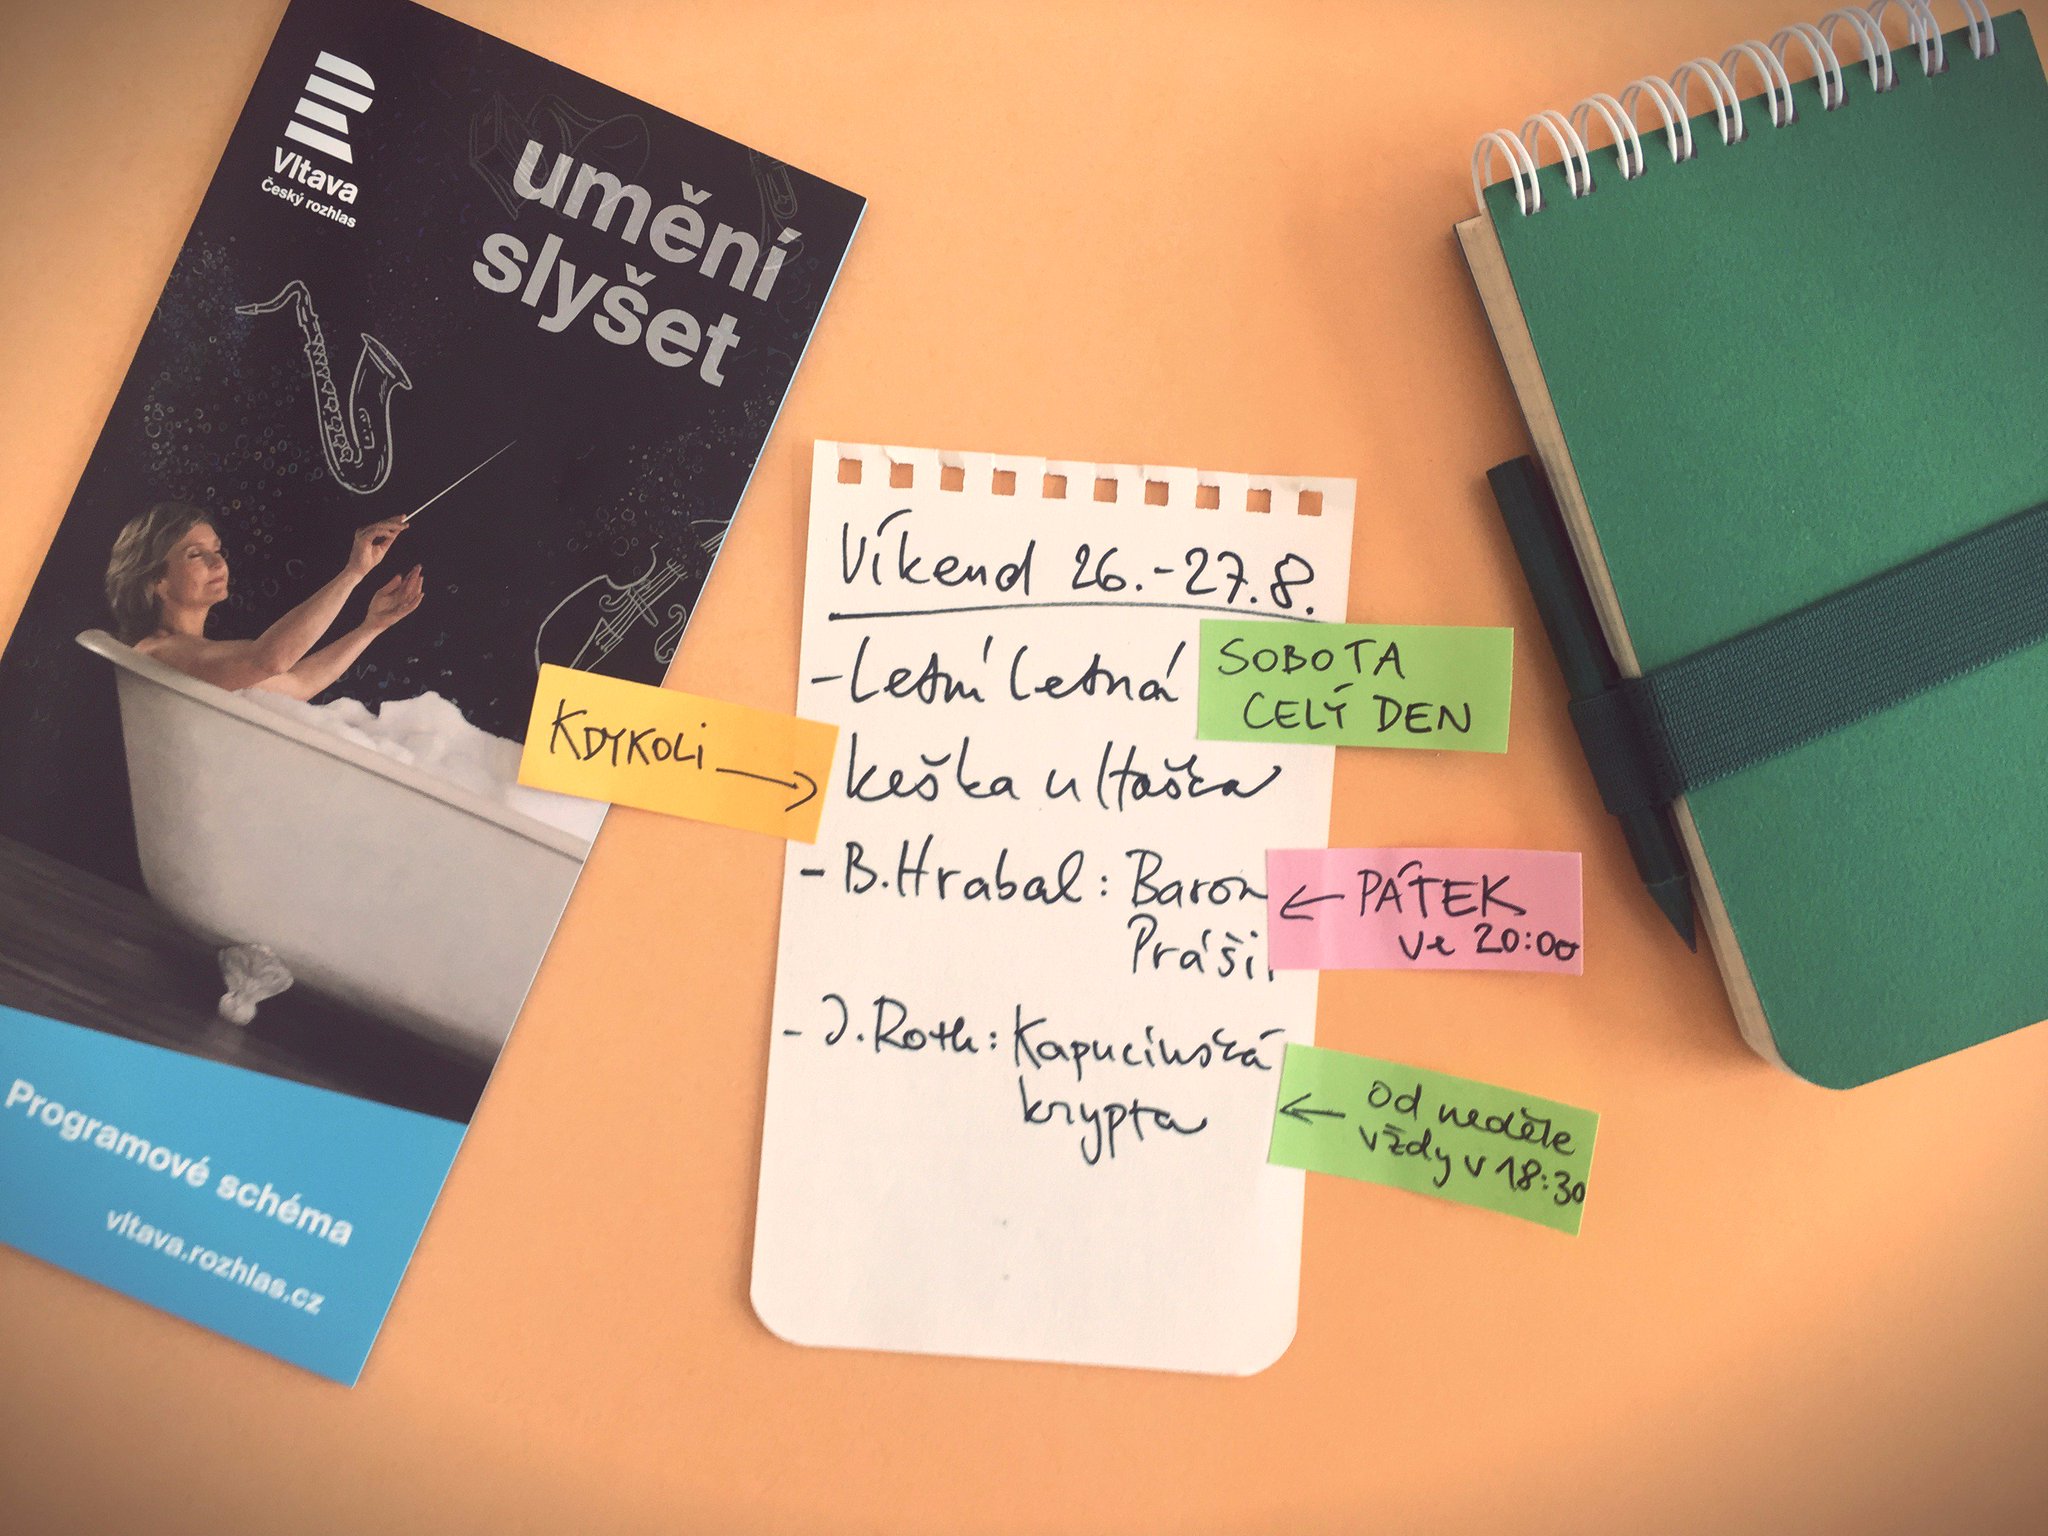 Vltava
Český rozhlas
umění
slyšet
Programové schéma
vltava.rozhlas.cz
Víkend 26.-27.8.
- Letní Letná
SOBOTA
CELÝ DEN
KDYKOLI →
keška u Haška
- B. Hrabal: Baron
Prášil
← PÁTEK
ve 20:00
- J. Roth: Kapucínská
krypta
← od neděle
vždy v 18:30